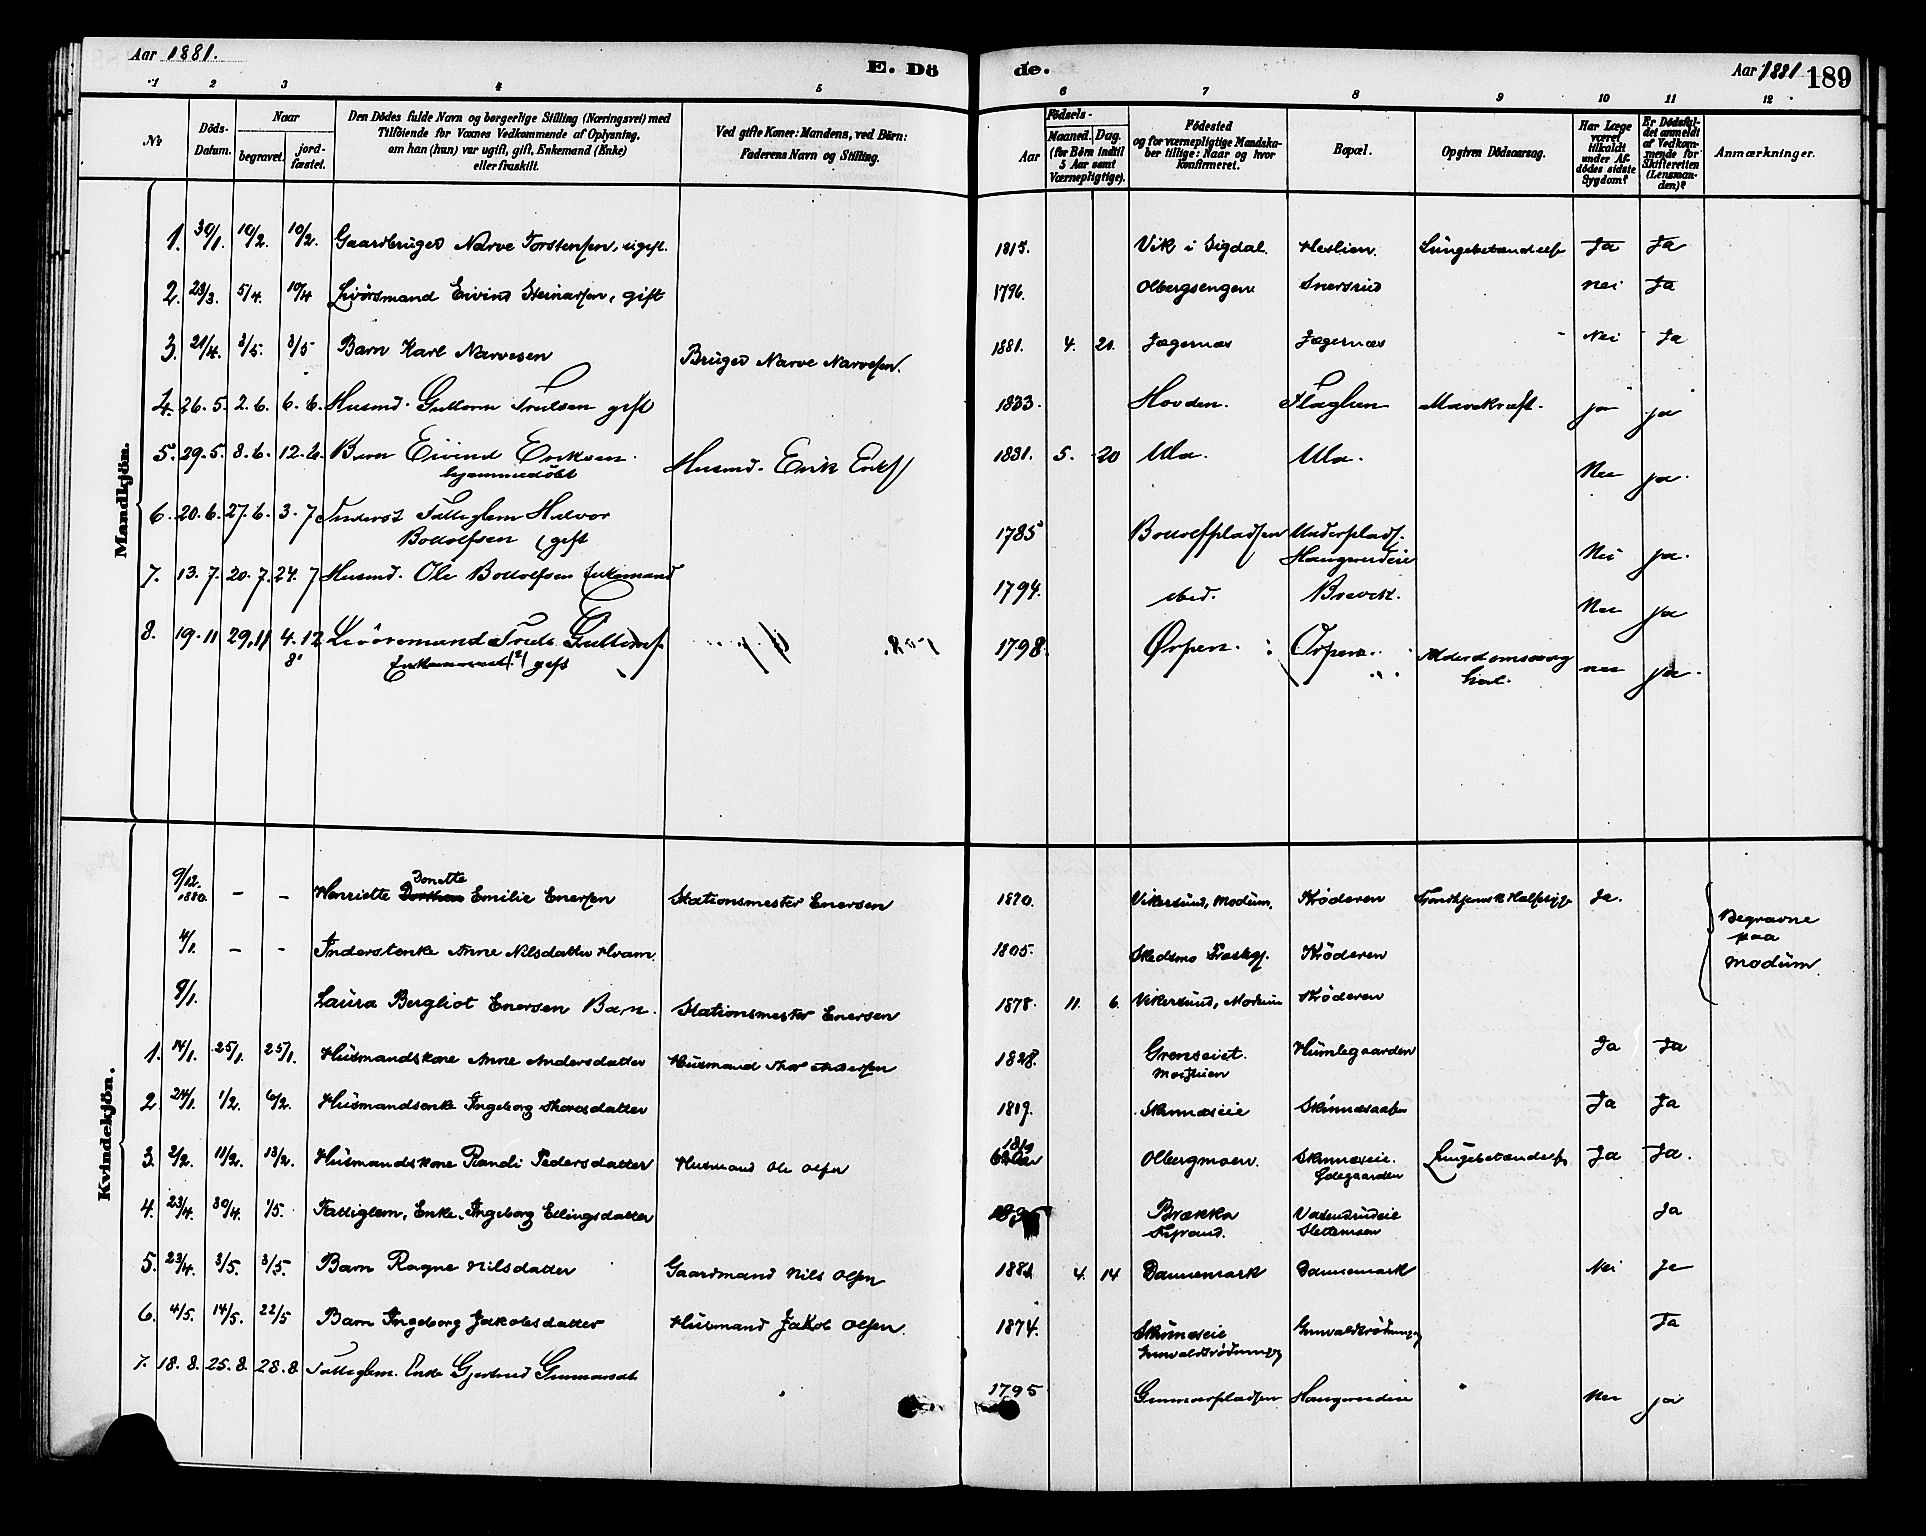 Aar 1881.
E. Dö
de.
Aar 1881
189
1 2 3 4 5 6 7 8 9 10 11 12
No.
Döds-Datum.
Naar
begravet.
jord-fæstet.
Den Dödes fulde Navn og borgerlige Stilling (Næringsvei) med
Tilföiende for Voxnes Vedkommende af Oplysning,
om han (hun) var ugift, gift, Enkemand (Enke)
eller fraskilt.
Ved gifte Koner: Mandens, ved Börn:
Faderens Navn og Stilling.
Födsels-
Aar
Maaned. Dag.
(for Börn indtil
5 Aar samt
Værnepligtige).
Födested
og for værnepligtige Mandska-
ber tillige: Naar og hvor
konfirmeret.
Bopæl.
Opgiven Dödsaarsag.
Har Læge
været
tilkaldt
under Af-
dödes sidste
Sygdom?
Er Dödsfal-
det anmeldt
af Vedkom-
mende for
Skifteretten
(Lensman-
den)?
Anmærkninger.
Mandkjön.
1. 30/1. 10/2. 10/2. Gaardbruger Narve Torstensen, ugift. 1815. Vik i Sigdal. Heslien. Lungebetændelse Ja Ja
2. 23/3. 5/4. 10/4 Livörsmand Eivind Steinarsen, gift 1796. Olbergsengen Snersrud Nei Ja
3. 21/4. 3/5. 3/5 Barn Karl Narvesen Bruger Narve Narvesen. 1881. 4. 21. Jægernæs Jægernæs Nei Ja
4. 26. 5. 2. 6. 6. 6. Husmd. Guttorm Trulsen gift 1833. Hovden. Flaglien Mavekræft. ja ja
5. 29. 5. 8. 6. 12. 6. Barn Eivind Eriksen. Husmd. Erik Eriks 1881. 5. 20 Ula. Ula. Nei ja.
hjemmedöbt
6. 20. 6. 27. 6. 3. 7 Fattiglem Halvor
Bottolfsen gift 1785 Bottolfpladsen Underplads. Nei ja.
7. 13. 7. 20. 7. 24. 7 Husmd. Ole Bottolfsen Enkemand 1794. ibid. Brevik. Nei ja
8. 19. 11 29. 11 4. 12 Livöresmand Truls Guttorms 1798. Ørpen. Ørpen. Alderdomssvag nei ja.
Enkemand (?) gift
Kvindekjön.
9/12. 1880. – – Henriette Donette Emilie Enersen Stationsmester Enersen 1870. Vikersund, Modum. Krøderen Ja.
4/1. – – Inderstenke Anne Nilsdatter Hvam. 1805. Skedsmo Præstegj. Krøderen
9/1. Laura Bergliot Enersen Barn. Stationsmester Enersen 1878. 11. 6. Vikersund, Modum Krøderen
Begravne
paa
Modum.
1. 14/1. 25/1. 25/1. Husmandskone Anne Andersdatter Husmand Thor Andersen 1828. Grenseiet. Humlegaarden Ja Ja
2. 24/1. 1/2. 6/2. Husmandsenke Ingeborg Thoresdatter 1819. Skinnæseie Ja Ja
3. 2/2. 11/2. 13/2. Husmandskone Randi Pedersdatter Husmand Ole Olsen 1819 Olbergmoen. Skinnæseie. Lungebetændelse Ja Ja.
Ødegaarden
4. 23/4. 30/4. 1/5. Fattiglem, Enke. Ingeborg Ellingsdatter Brækka Ja
5. 23/4. 3/5. 3/5. Barn Ragne Nilsdatter Gaardmand Nils Olsen 1881 4. 14 Dannemark Dannemark Nei Ja
6. 4/5. 14/5. 22/5 Barn Ingeborg Jakobsdatter Husmand Jakob Olsen. 1874. Skinnæseie Ja
7. 18. 8. 25. 8. 28. 8. Fattiglem. Enke Gjertrud Gunnarsdt 1795 Gunnarpladsen Nei ja